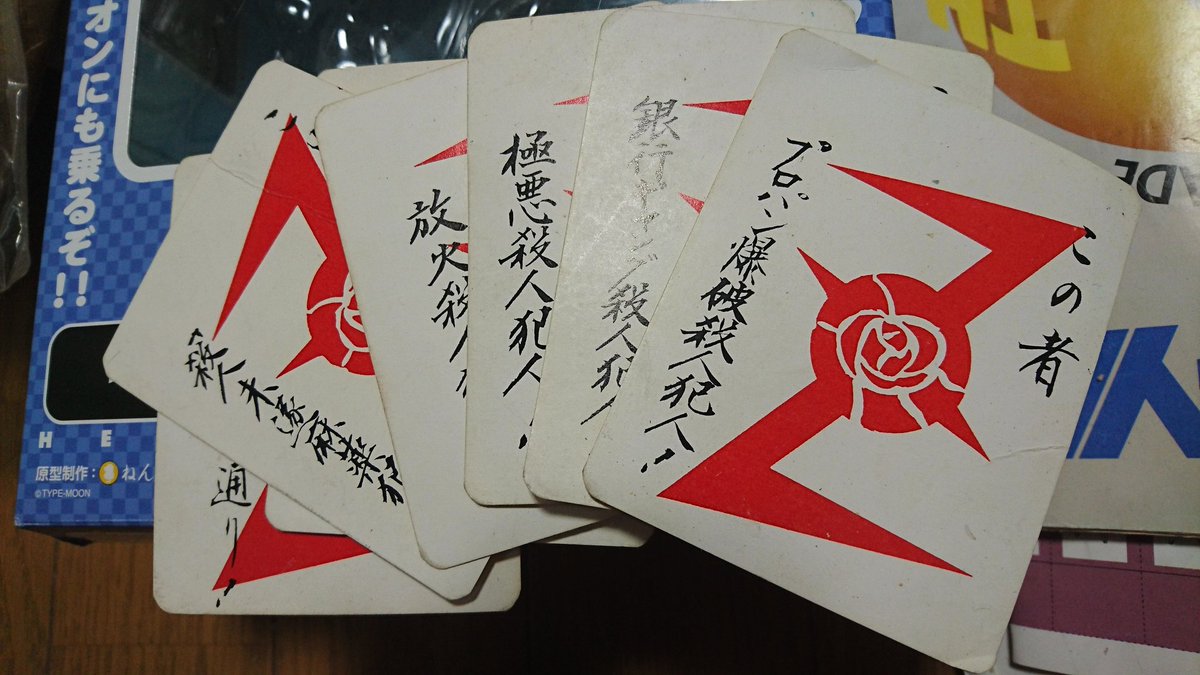 この者
プロパン爆破殺人犯人!
銀行ギャング殺人犯
極悪殺人犯人!
放火殺人
殺人未遂麻薬
通り!
オンにも乗るぞ!!
H E
原型制作:
ねん
©TYPE-MOON
ADE